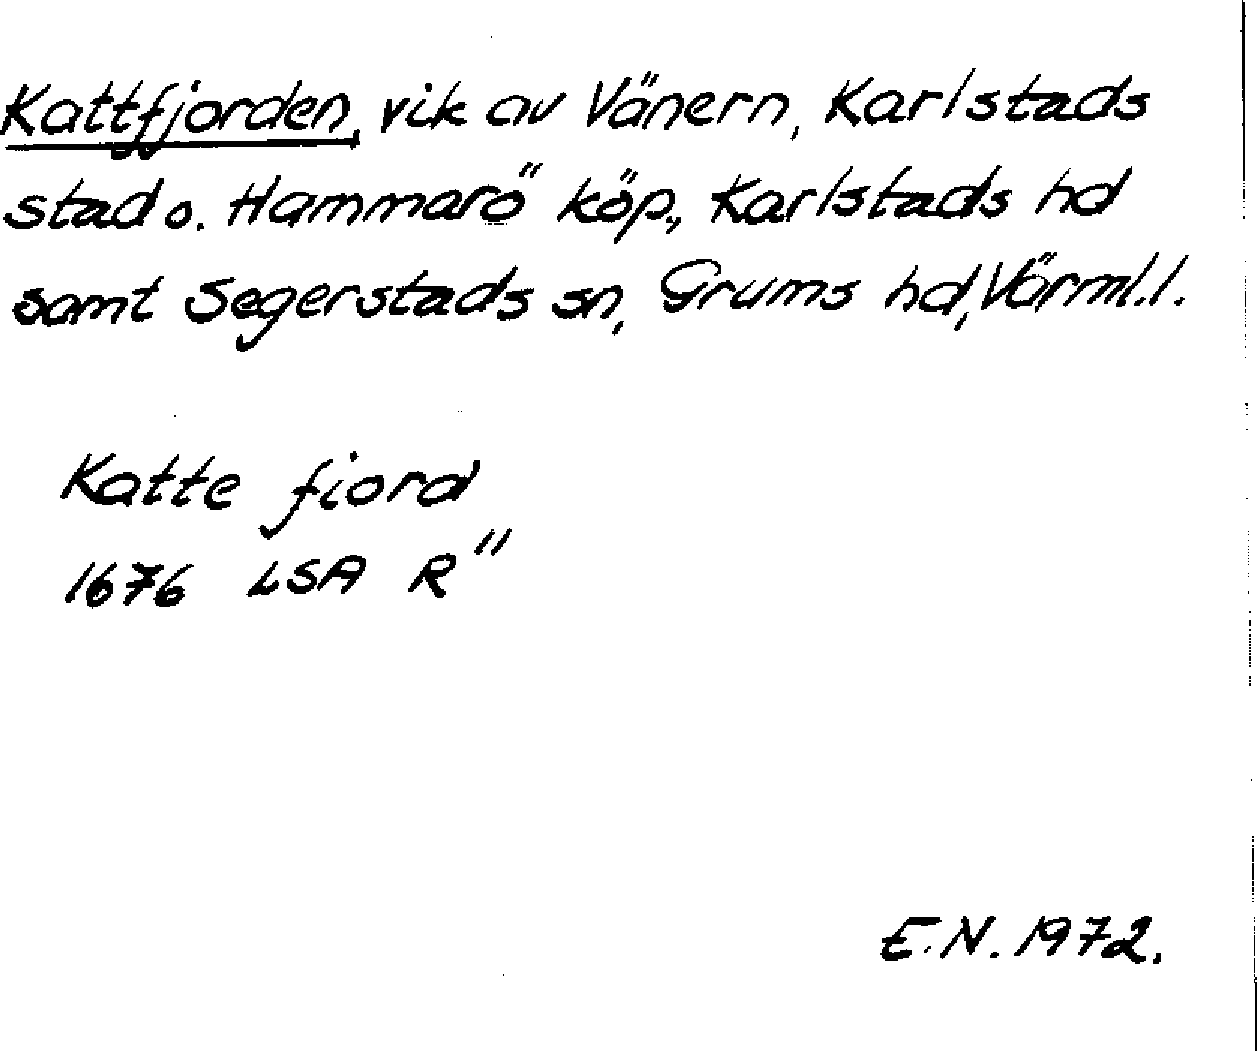 Kattfjorden, vik av Vänern, Karlstads
stad o. Hammarö köp., Karlstads hd
samt Segerstads sn, Grums hd, Värml.l.
Katte fiord
1676 LSA R"
E.N. 1972.